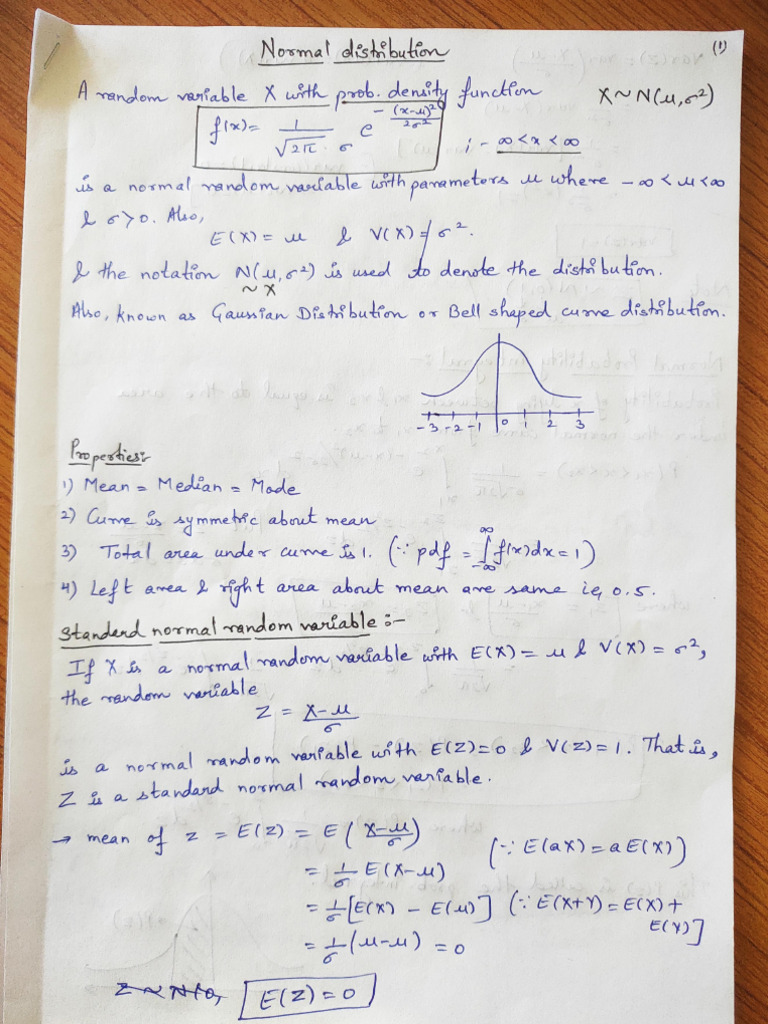 (1)
Normal distribution
A random variable X with prob. density function X ~ N(μ, σ²)
f(x) = 1/(√2π σ) e^(-(x-μ)²/2σ²) ; -∞ < x < ∞
is a normal random variable with parameters μ where -∞ < μ < ∞
& σ > 0. Also,
E(X) = μ & V(X) = σ².
& the notation N(μ, σ²) is used to denote the distribution.
~ X
Also, known as Gaussian Distribution or Bell shaped curve distribution.
-3 -2 -1 0 1 2 3
Properties:-
1) Mean = Median = Mode
2) Curve is symmetric about mean
3) Total area under curve is 1. (∵ pdf = ∫_{-∞}^{∞} f(x)dx = 1)
4) Left area & right area about mean are same ie, 0.5.
Standard normal random variable :-
If X is a normal random variable with E(X) = μ & V(X) = σ²,
the random variable
Z = (X-μ)/σ
is a normal random variable with E(Z)=0 & V(Z)=1. That is,
Z is a standard normal random variable.
→ mean of z = E(Z) = E((X-μ)/σ)
= 1/σ E(X-μ) (∵ E(aX) = a E(X))
= 1/σ [E(X) - E(μ)] (∵ E(X+Y) = E(X) +
E(Y)]
= 1/σ (μ-μ) = 0
Z ~ N(0, E(Z) = 0